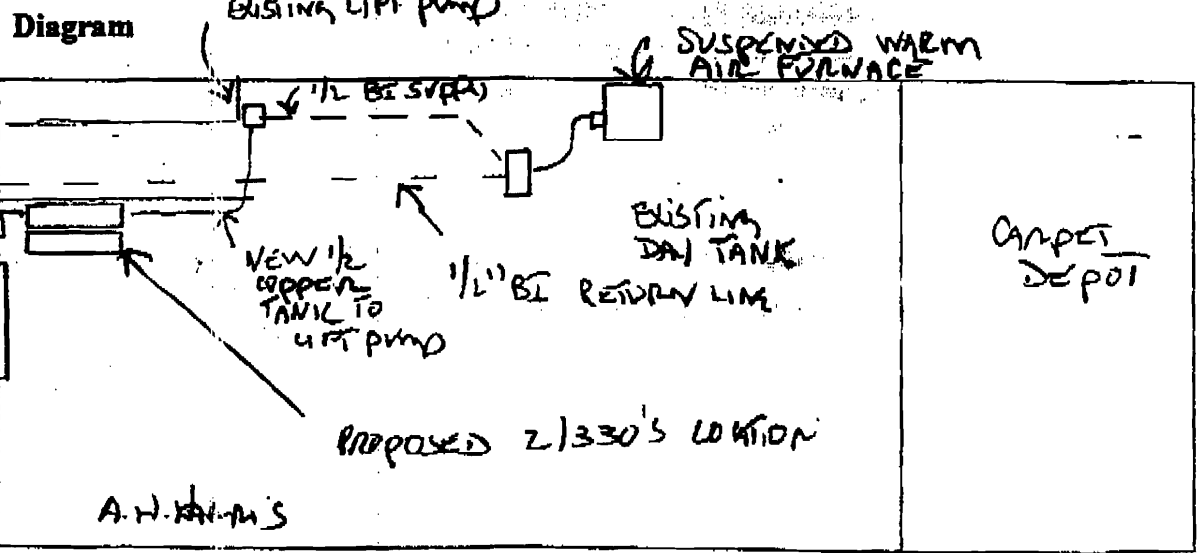 EXISTING LIFT PUMP
Diagram
SUSPENDED WARM
AIR FURNACE
1/2 BI SUPPLY
EXISTING
DAY TANK
CARPET
DEPOT
NEW 1/2
COPPER
TANK TO
LIFT PUMP
1/2" BI RETURN LINE
PROPOSED 2/330'S LOCATION
A.H.